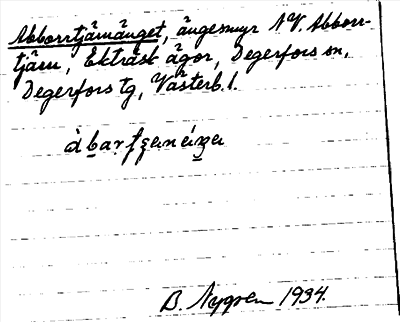 Abborrtjärnänget, ängesmyr N V. Abborr-
tjärn, Ekträsk ägor, Degerfors sn,
Degerfors tg, Västerb. l.
B. Nygren 1934.